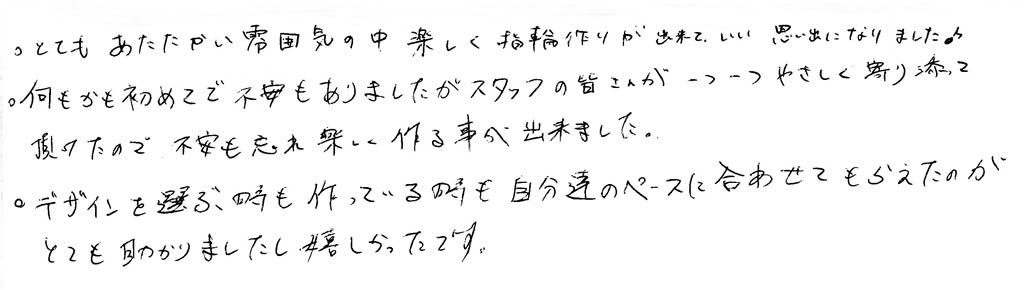 。とてもあたたかい雰囲気の中楽しく指輪作りが出来て、いい思い出になりました。
。何もかも初めてで不安もありましたがスタッフの皆さんが一つ一つやさしく寄り添って
頂けたので不安も忘れ楽しく作る事が出来ました。
。デザインを選ぶ、時も作っている時も自分達のペースに合わせてもらえたのが
とても助かりましたし嬉しかったです。